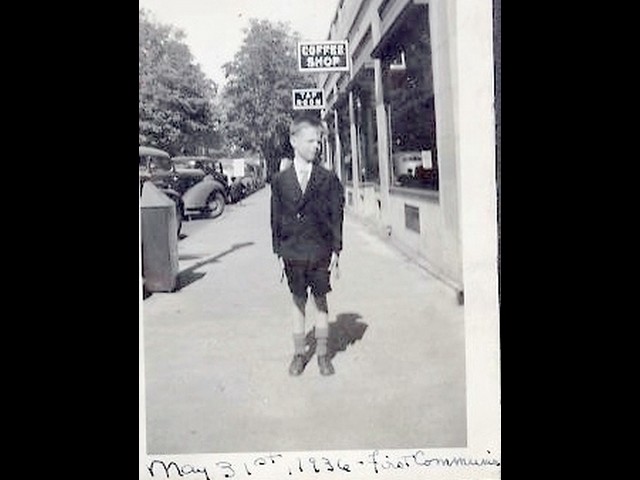 COFFEE
SHOP
TAP
ROOM
May 31st, 1936 - First Communi